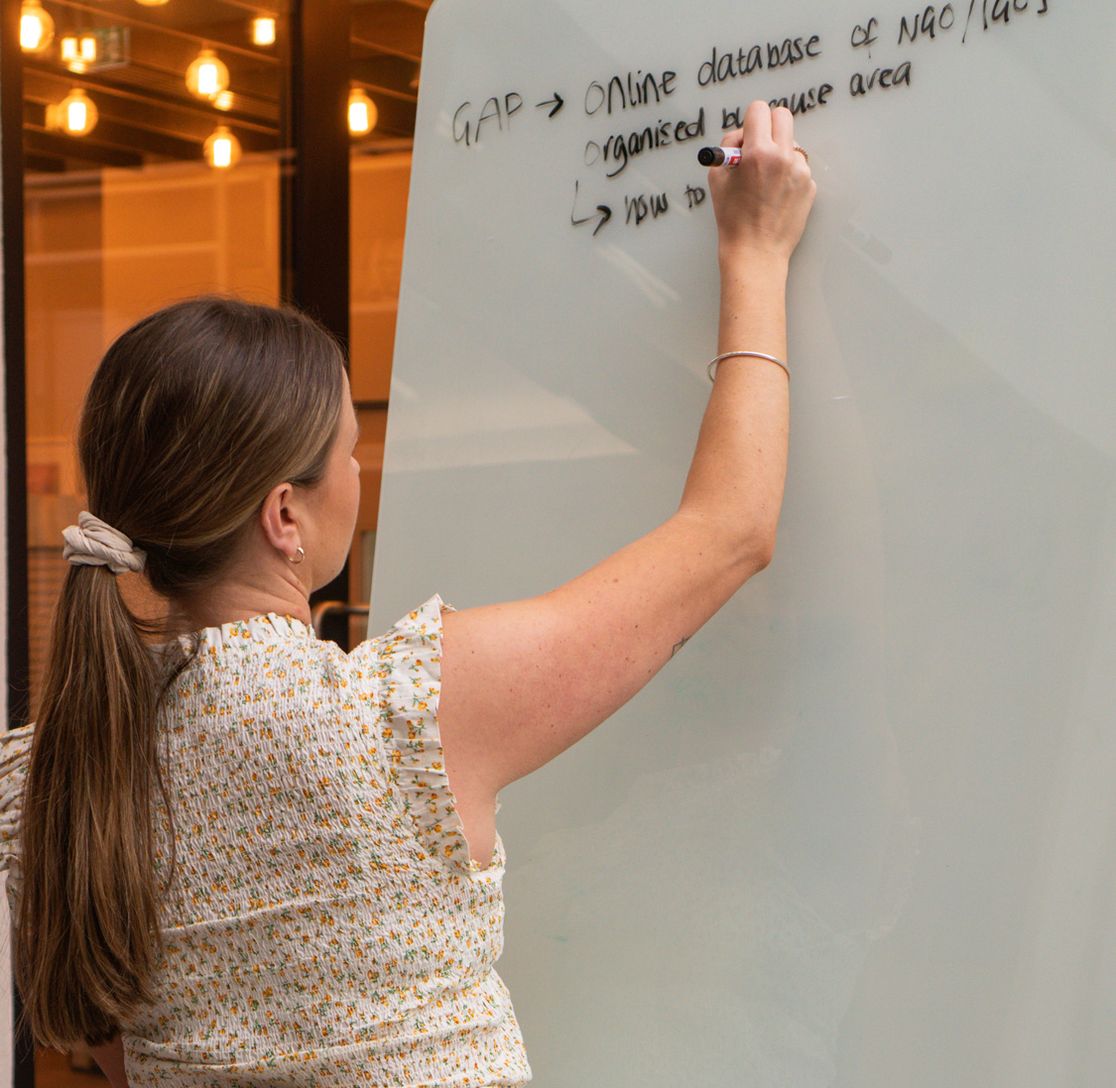 GAP → Online database of NGO/IGOs
organised by cause area
↳ how to